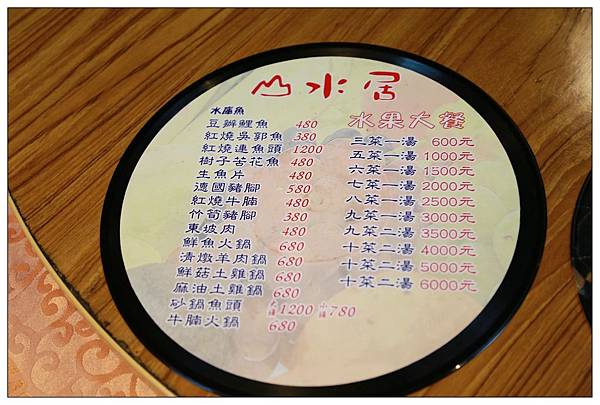 山水居
水庫魚
豆瓣鯉魚 480
紅燒吳郭魚 380
紅燒連魚頭 1200
樹子苦花魚 480
生魚片 480
德國豬腳 580
紅燒牛腩 480
竹筍豬腳 380
東坡肉 480
鮮魚火鍋 680
清燉羊肉鍋 680
鮮菇土雞鍋 680
麻油土雞鍋 680
砂鍋魚頭 大鍋1200 小鍋780
牛腩火鍋 680
水果大餐
三菜一湯 600元
五菜一湯 1000元
六菜一湯 1500元
七菜一湯 2000元
八菜一湯 2500元
九菜一湯 3000元
九菜二湯 3500元
十菜二湯 4000元
十菜二湯 5000元
十菜二湯 6000元